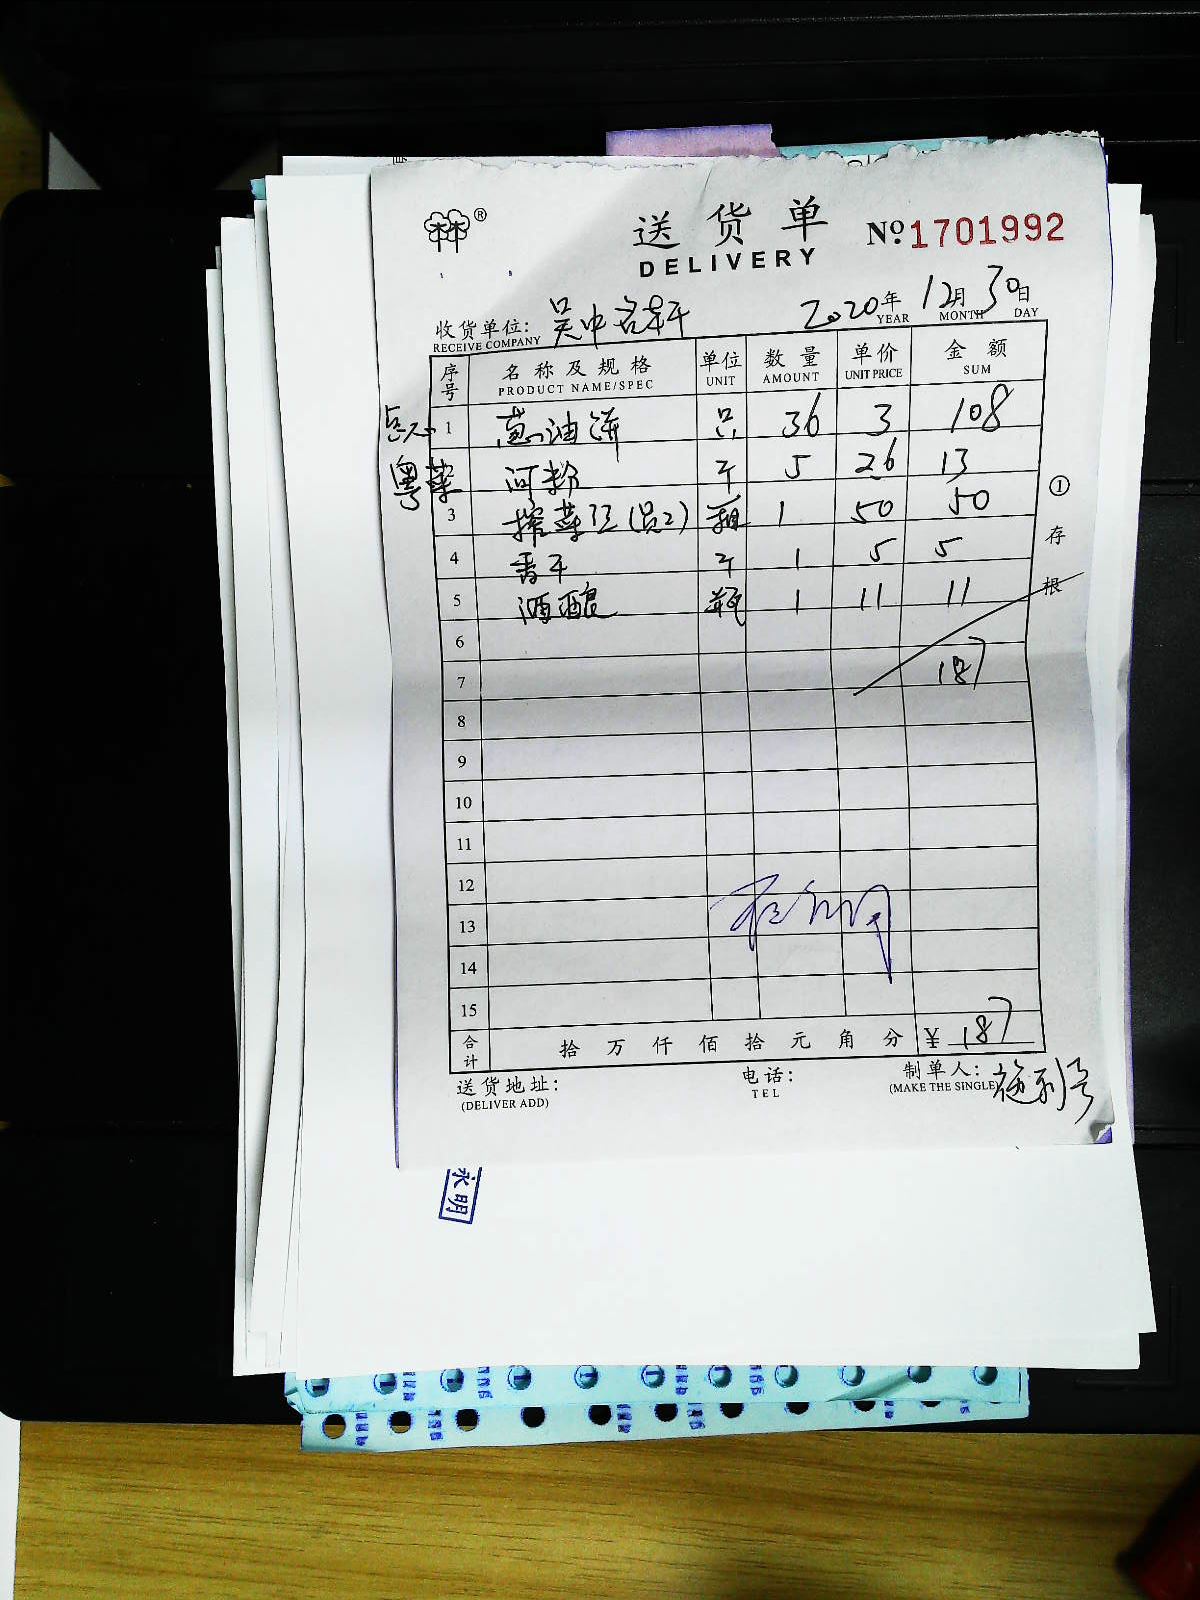 林林®
送货单 №1701992
DELIVERY
收货单位: 吴中名轩 2020年12月30日
RECEIVE COMPANY YEAR MONTH DAY
序号 名称及规格 单位 数量 单价 金额
PRODUCT NAME/SPEC UNIT AMOUNT UNIT PRICE SUM
点心 1 葱油饼 只 36 3 108
粤菜 河粉 斤 5 26 13
3 榨菜 1 50 50
4 香干 斤 1 5 5
5 酒酿 瓶 1 11 11
6
7 187
8
9
10
11
12
13
14
15
合计 拾 万 仟 佰 拾 元 角 分 ¥ 187
送货地址: 电话: 制单人:
(DELIVER ADD) TEL (MAKE THE SINGLE)
①存根
永明